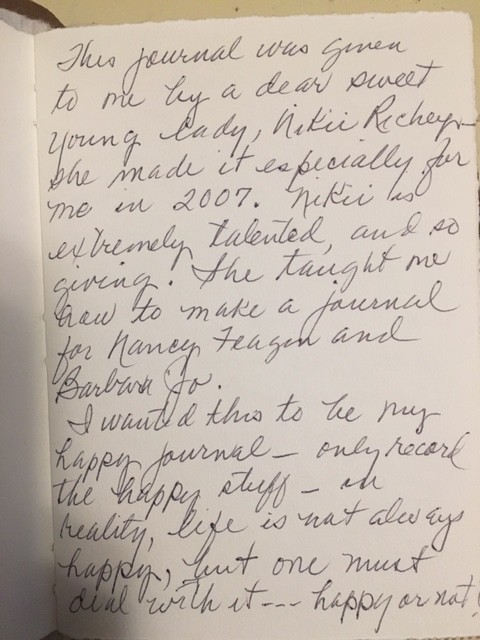 This journal was given
to me by a dear sweet
young lady, Nikii Richey -
she made it especially for
me in 2007. Nikii is
extremely talented, and so
giving. She taught me
how to make a journal
for Nancy Feagin and
Barbara Jo.
I wanted this to be my
happy journal - only record
the happy stuff - in
reality, life is not always
happy, but one must
deal with it --- happy or not!